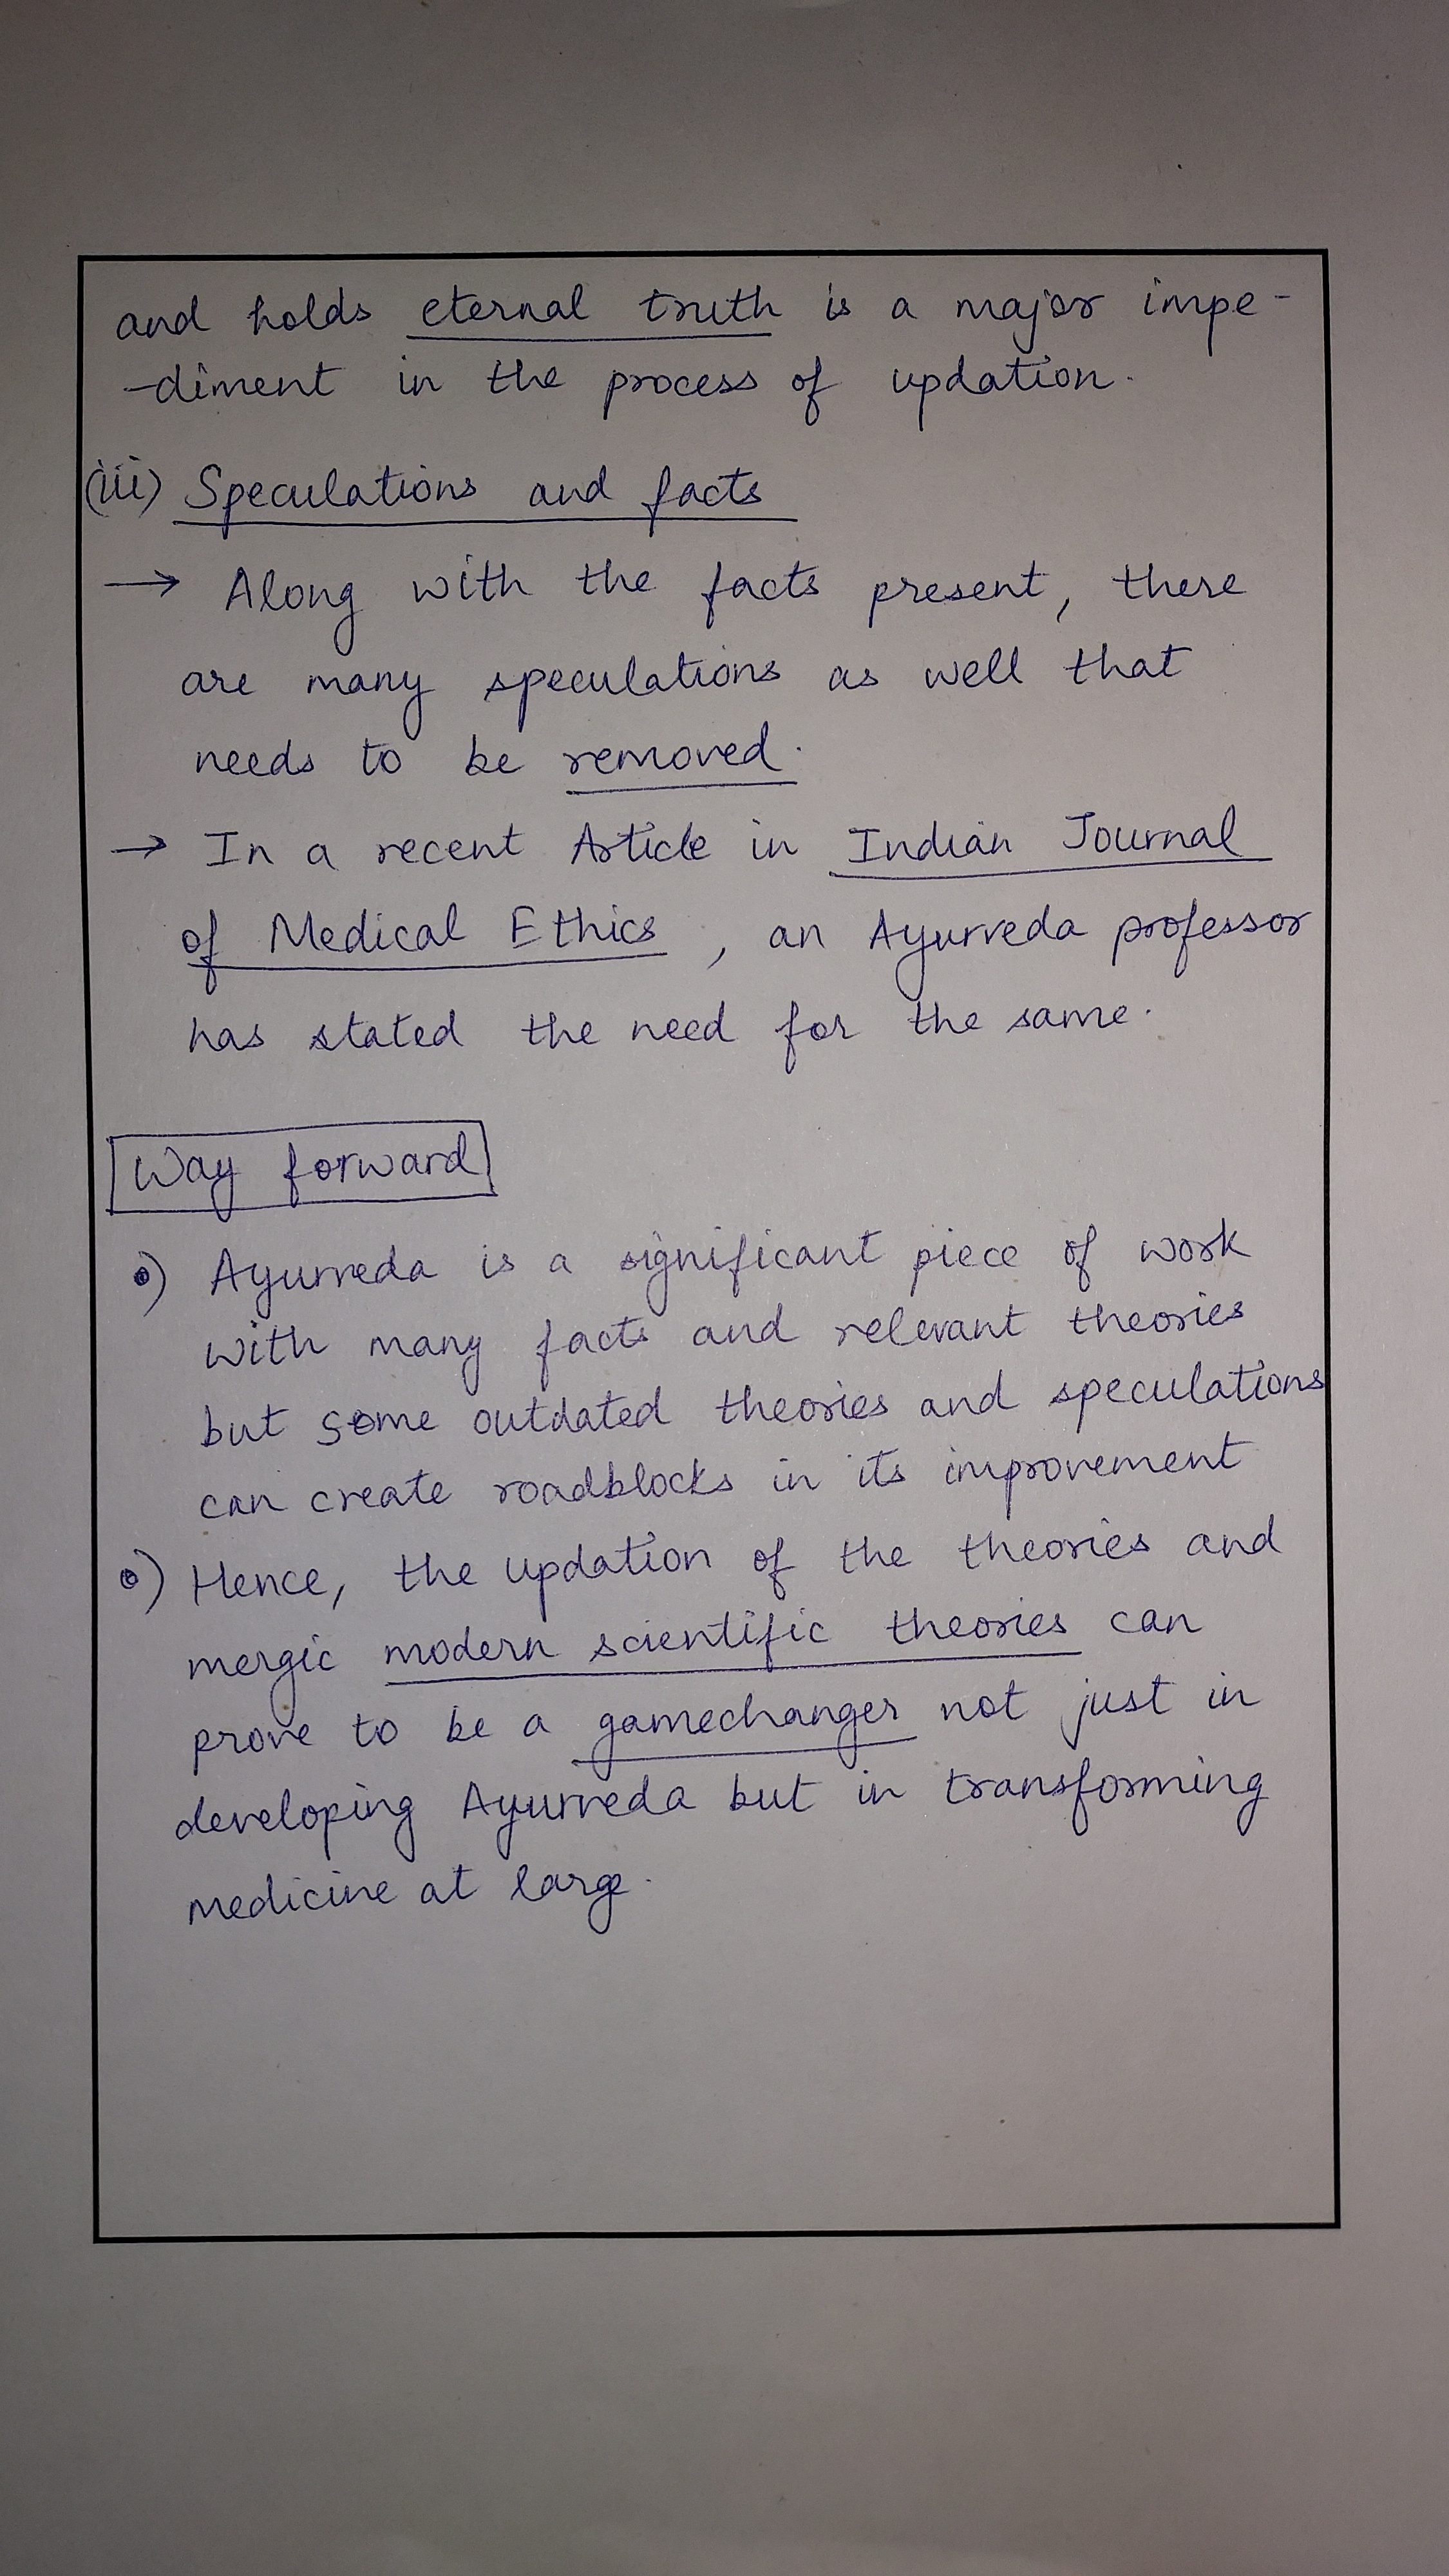 and holds eternal truth is a major impe-
-diment in the process of updation.
(iii) Speculations and facts
→ Along with the facts present, there
are many speculations as well that
needs to be removed.
→ In a recent Article in Indian Journal
of Medical Ethics, an Ayurveda professor
has stated the need for the same.
Way forward
•) Ayurveda is a significant piece of work
with many facts and relevant theories
but some outdated theories and speculations
can create roadblocks in its improvement
•) Hence, the updation of the theories and
mergic modern scientific theories can
prove to be a gamechanger not just in
developing Ayurveda but in transforming
medicine at large.